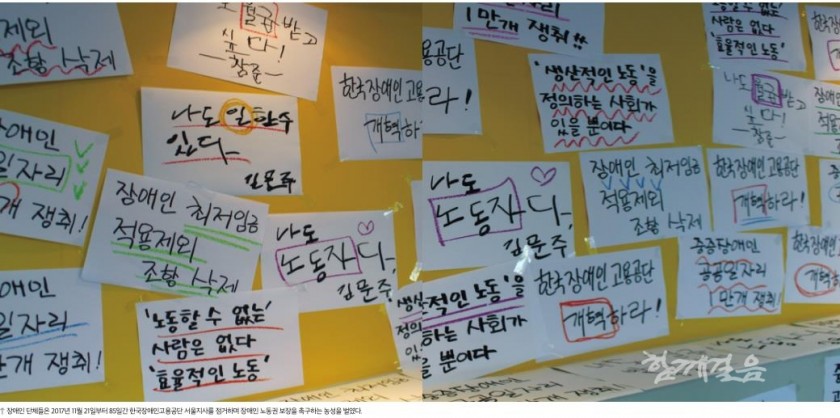 제외
조항 삭제
나도 월급 받고
싶다!
-창준-
1만개 쟁취!!
나도 일할 수
있다
김문주
한국장애인고용
개혁하
공단
라!
'생산적인 노동'을
정의하는 사회가
있을 뿐이다
수 없는
사람은 없다
'효율적인 노동'
나도 월급 받고
싶다!
-창준-
장애인
일자리
개 쟁취!
장애인 최저임금
적용제외
조항 삭제
나도
노동자다.
김문주
나도
노동자다.
김문주
장애인 최저임금
적용제외
조항 삭제
한국장애인고용공단
개혁하라!
일자리
만개 쟁취!
'노동할 수 없는'
사람은 없다
'효율적인 노동'
생산적인 노동'을
정의하는 사회가
있을 뿐이다
한국장애인고용공단
개혁하라!
중증장애인
공공일자리
1만개 쟁취!
한국장애
개혁하
함께걸음
↑ 장애인 단체들은 2017년 11월 21일부터 85일간 한국장애인고용공단 서울지사를 점거하며 장애인 노동권 보장을 촉구하는 농성을 벌였다.